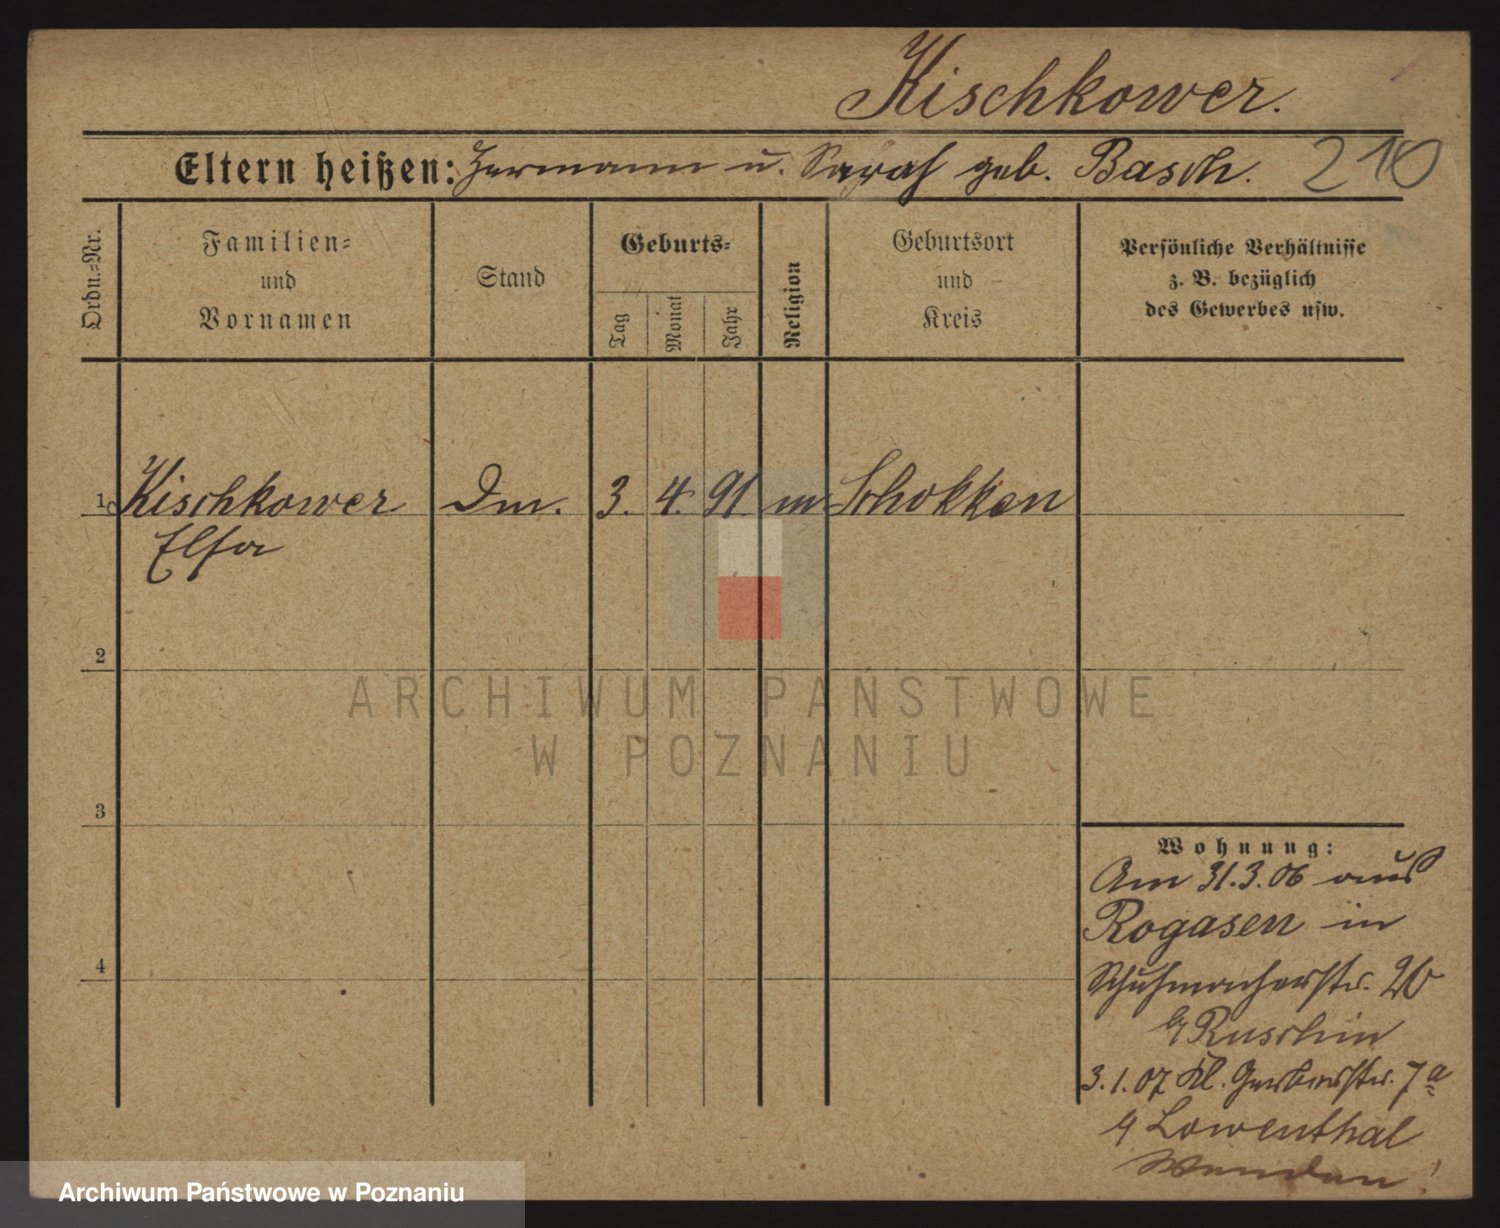 Kischkower.
Eltern heißen: Hermann u. Sarah geb. Basch. 210
Ordn.-Nr.
Familien-
und
Vornamen
Stand
Geburts-
Tag
Monat
Jahr
Religion
Geburtsort
und
Kreis
Persönliche Verhältnisse
z. B. bezüglich
des Gewerbes usw.
1 Kischkower Dm. 3. 4. 91 m Schokken
Elsa
2
3
4
ARCHIWUM PAŃSTWOWE
W POZNANIU
Wohnung:
Am 31.3.06 aus
Rogasen in
Schuhmacherstr. 20
b/ Ruschin
3.1.07 Kl. Gerberstr. 7a
b/ Lowenthal
Wenden!
Archiwum Państwowe w Poznaniu